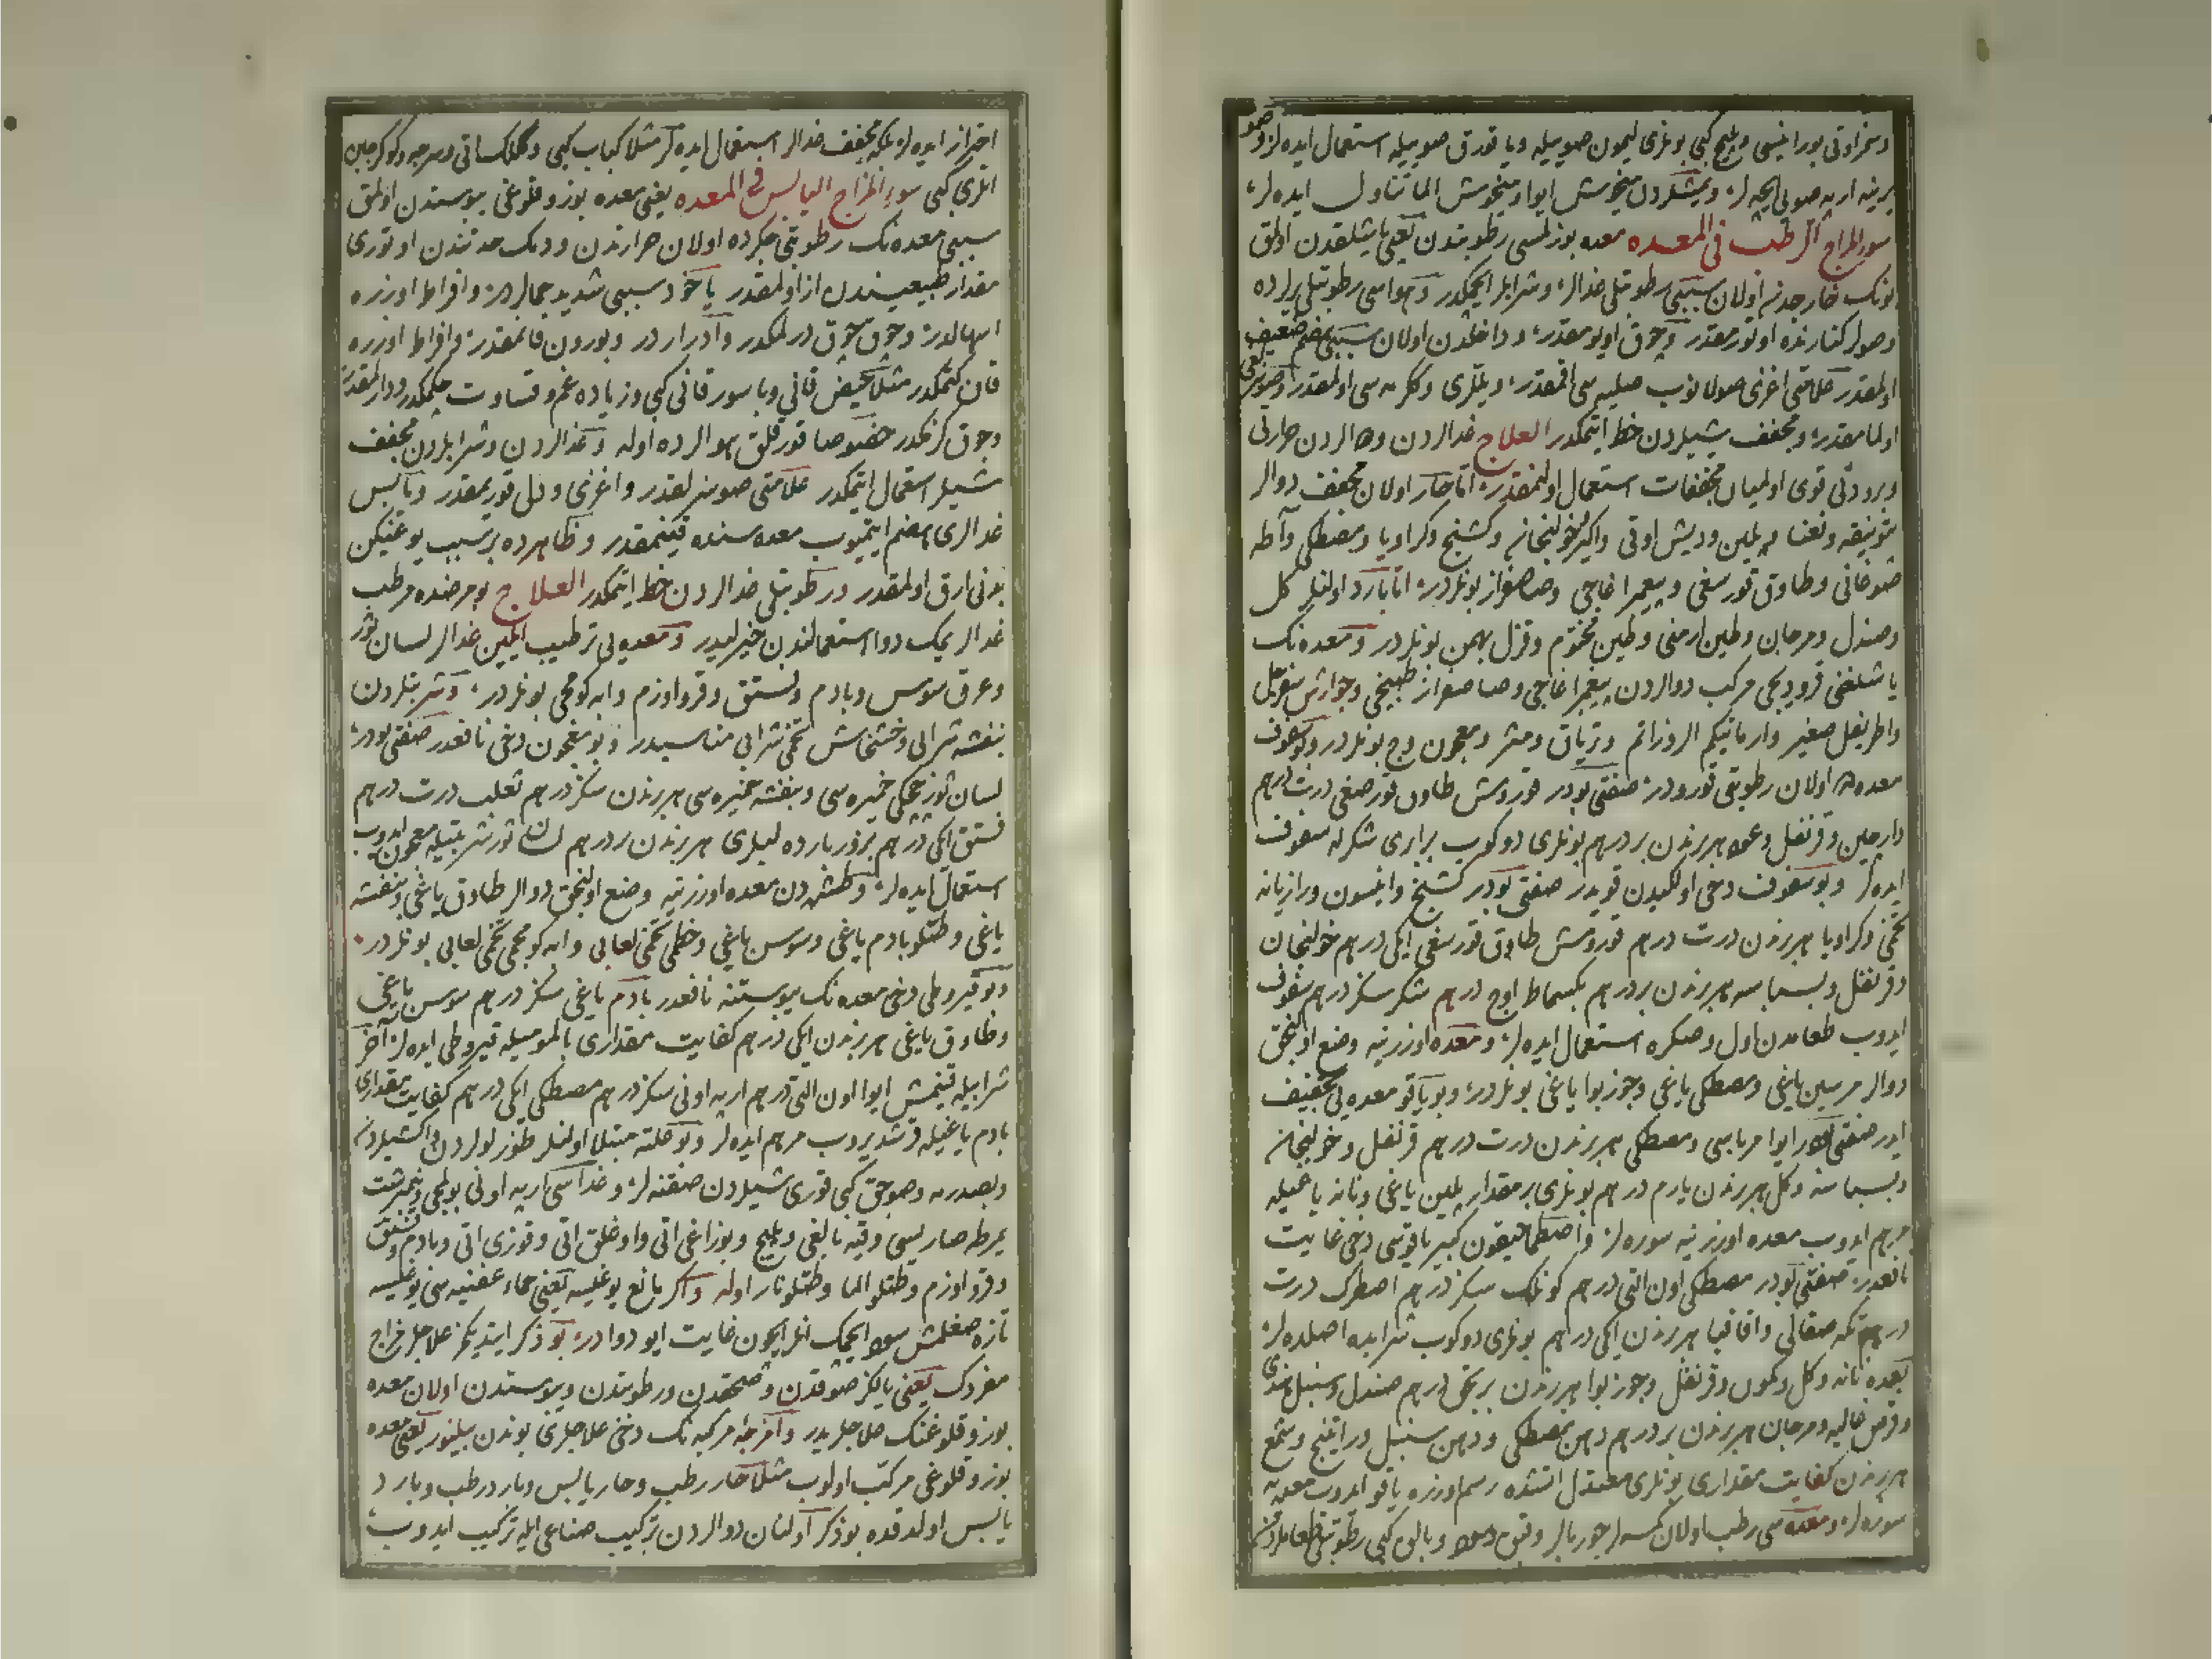 وسخر اوتی بورانیسی و بلیج کبی بونلری لیمون صوییله ویا قورق صوییله استعمال ایده لر و صو
یرینه ارپه صویی ایچه لر و یمشلردن میخوش ایوا و میخوش الما تناول ایده لر
سوء المزاج الرطب فی المعده معده بوزلمسی رطوبتدن یعنی یاشلقدن اولمق
بونک خارجدن اولان سببی رطوبتلی غدالر و شرابلر ایچمکدر و هواسی رطوبتلی یرلرده
وصولر کنارنده اوتورمقدر و چوق اویومقدر و داخلدن اولان سببی هضم ضعیف
اولمقدر علامتی اغزی صولانوب صلیه سی اقمقدر و یللری و ککرمه سی اولمقدر و صوسزلغی
اولمامقدر و مجفف شیلردن حظ ایتمکدر العلاج غدالردن و دوالردن حرارتی
و برودتی قوی اولمیان مجففات استعمال اولنمقدر اما حار اولان مجفف دوالر
و نعنا و یلمین و دیش اوتی و اکیر و خولنجان و کشنج و کراویا و مصطکی و آطه
صوغانی و طاوق قورسغی و پیغمبر اغاجی و صاصفراز بونلردر اما بارد اولنلر کل
و صندل و مرجان و طین ارمنی و طین مختوم و قزل بهمن بونلردر و معده نک
یاشلغنی قرودیجی مرکب دوالردن پیغمبر اغاجی و صاصفراز طبیخی و جوارش سفرجل
و اطریفل صغیر و ارماتیکم الروزاتم و تریاق و مثر و معجون وج بونلردر و بو سفوف
معده ده اولان رطوبتی قورودر صفتی بودر قورومش طاوق قورصغی درت درهم
دارچین و قرنفل و عود هر برندن بر درهم بونلری دوکوب برابری شکرله سفوف
ایده لر و بو سفوف دخی اولکیدن قویدر صفتی بودر کشنج و انیسون و رازیانه
تخمی و کراویا هر برندن درت درهم قورومش طاوق قورسغی ایکی درهم خولنجان
و قرنفل و بسباسه هر برندن بر درهم بکسماط اوچ درهم شکر سکز درهم سفوف
ایدوب طعامدن اول و صکره استعمال ایده لر و معده اوزرینه وضع اولنجق
دوالر مرسین یاغی و مصطکی یاغی و جوز بوا یاغی بونلردر و بو یاقو معده یی تجفیف
ایدر صفتی بودر ایوا مرباسی و مصطکی هر برندن درت درهم قرنفل و خولنجان
و بسباسه و کل هر برندن یارم درهم بونلری بر مقدار یلمین یاغی و نانه یاغیله
مرهم ایدوب معده اوزرینه سوره لر و اصطماتیقون کبیر یاقوسی دخی غایت
نافعدر صفتی بودر مصطکی اون التی درهم کونلک سکز درهم اصطرک درت
درهم تکه صقالی و اقاقیا هر برندن ایکی درهم بونلری دوکوب شرابده اصلده لر
بعده نانه و کل و کمون و قرنفل و جوز بوا هر برندن بر بچق درهم صندل و سنبل هندی
و قرص غالیه و مرجان هر برندن بر درهم دهن مصطکی و دهن سنبل و راتینج و شمع
هر برندن کفایت مقداری بونلری معتدل اتشده رسم اوزره یاقو ایدوب معده یه
سوره لر و معده سی رطب اولان کمسه لر چوربالر و قارپوز و بالق کبی رطوبتلی طعاملردن
احتراز ایده لر بلکه مجفف غدالر استعمال ایده لر مثلا کباب کبی و ککلک اتی و سرچه و کوکرجین
اتلری کبی سوء المزاج الیابس فی المعده یعنی معده بوزوقلوغی یبوستدن اولمق
سببی معده نک رطوبتی جکرده اولان حرارتدن و دمک حدتندن اوتوری
مقدار طبیعیسندن از اولمقدر یا خود سببی شدید حمالردر و افراط اوزره
اسهالدر و چوق چوق درلمکدر و ادراردر و بورون قانمقدر و افراط اوزره
قان کتمکدر مثلا حیض قانی و باسور قانی کبی و زیاده غم و قساوت چکمکدر و دارلمقدر
و چوق کزمکدر خصوصا قوراقلق هوالرده اوله و غدالردن و شرابلردن مجفف
شیلر استعمال ایتمکدر علامتی صوسزلقدر و اغزی و دلی قوریمقدر و یابس
غدالری هضم ایتمیوب معده سنده قینمقدر و ظاهرده بر سبب یوغیکن
بدنی ارق اولمقدر و رطوبتلی غدالردن حظ ایتمکدر العلاج بو مرضده مرطب
غدالر یمک دوا استعمالندن خیرلیدر و معده یی ترطیب ایلیین غدالر لسان ثور
و عرق سوس و بادم و فستق و قرو اوزم و ابه کومجی بونلردر و شربتلردن
بنفشه شرابی و خشخاش تخمی شرابی مناسبدر و بو معجون دخی نافعدر صفتی بودر
لسان ثور چچکی خمیره سی و بنفشه خمیره سی هر برندن سکز درهم ثعلب درت درهم
فستق ایکی درهم بزور بارده لبلری هر برندن بر درهم لسان ثور شربتیله معجون ایدوب
استعمال ایده لر و طشره دن معده اوزرینه وضع اولنجق دوالر طاوق یاغی و بنفشه
یاغی و طتلو بادم یاغی و سوسن یاغی و خطمی تخمی لعابی و ابه کومجی تخمی لعابی بونلردر
و بو قیروطی دخی معده نک یبوستنه نافعدر بادم یاغی سکز درهم سوسن یاغی
و طاوق یاغی هر برندن ایکی درهم کفایت مقداری بالمومیله قیروطی ایده لر آخر
شرابیله قینمش ایوا اون التی درهم ارپه اونی سکز درهم مصطکی ایکی درهم کفایت مقداری
بادم یاغیله قرشدیروب مرهم ایده لر و بو علته مبتلا اولنلر طوزلولردن و اکشیلردن
و بصدرمه و صوجق کبی قوری شیلردن صقنه لر و غداسی ارپه اونی بولمجی و نیمبرشت
یمرطه صاریسی و قیه بالغی و بلیج و بوزاغی اتی و اوغلق اتی و قوزی اتی و بادم و فستق
و قرو اوزم و طتلو الما و طتلو نار اوله و اکر مانع یوغیسه یعنی حماء عفنیه سی یوغیسه
تازه صغلمش سود ایچمک انلر ایچون غایت ایو دوادر بو ذکر ایتدیکمز علاجلر مزاج
مفردک یعنی یالکز صوقدن و صیجقدن و رطوبتدن و یبوستدن اولان معده
بوزوقلوغنک علاجلریدر و امزجه مرکبه نک دخی علاجلری بوندن بیلنور یعنی معده
بوزوقلوغی مرکب اولوب مثلا حار رطب و حار یابس و بارد رطب و بارد
یابس اولدقده بو ذکر اولنان دوالردن ترکیب صناعی ایله ترکیب ایدوب